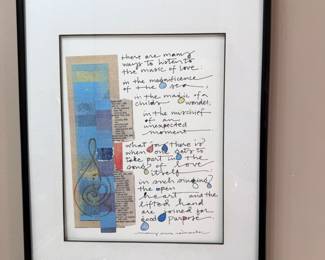 there are many
ways to listen to
the music of love.
in the magnificence
of the sea,
in the magic of a
child's wonder,
in the mischief
of an
unexpected
moment
what there is?
when one gets to
take part in the
song of love
itself
in such singing?
the open
heart and the
lifted hand
are joined for
good purpose.
mary anne radmacher